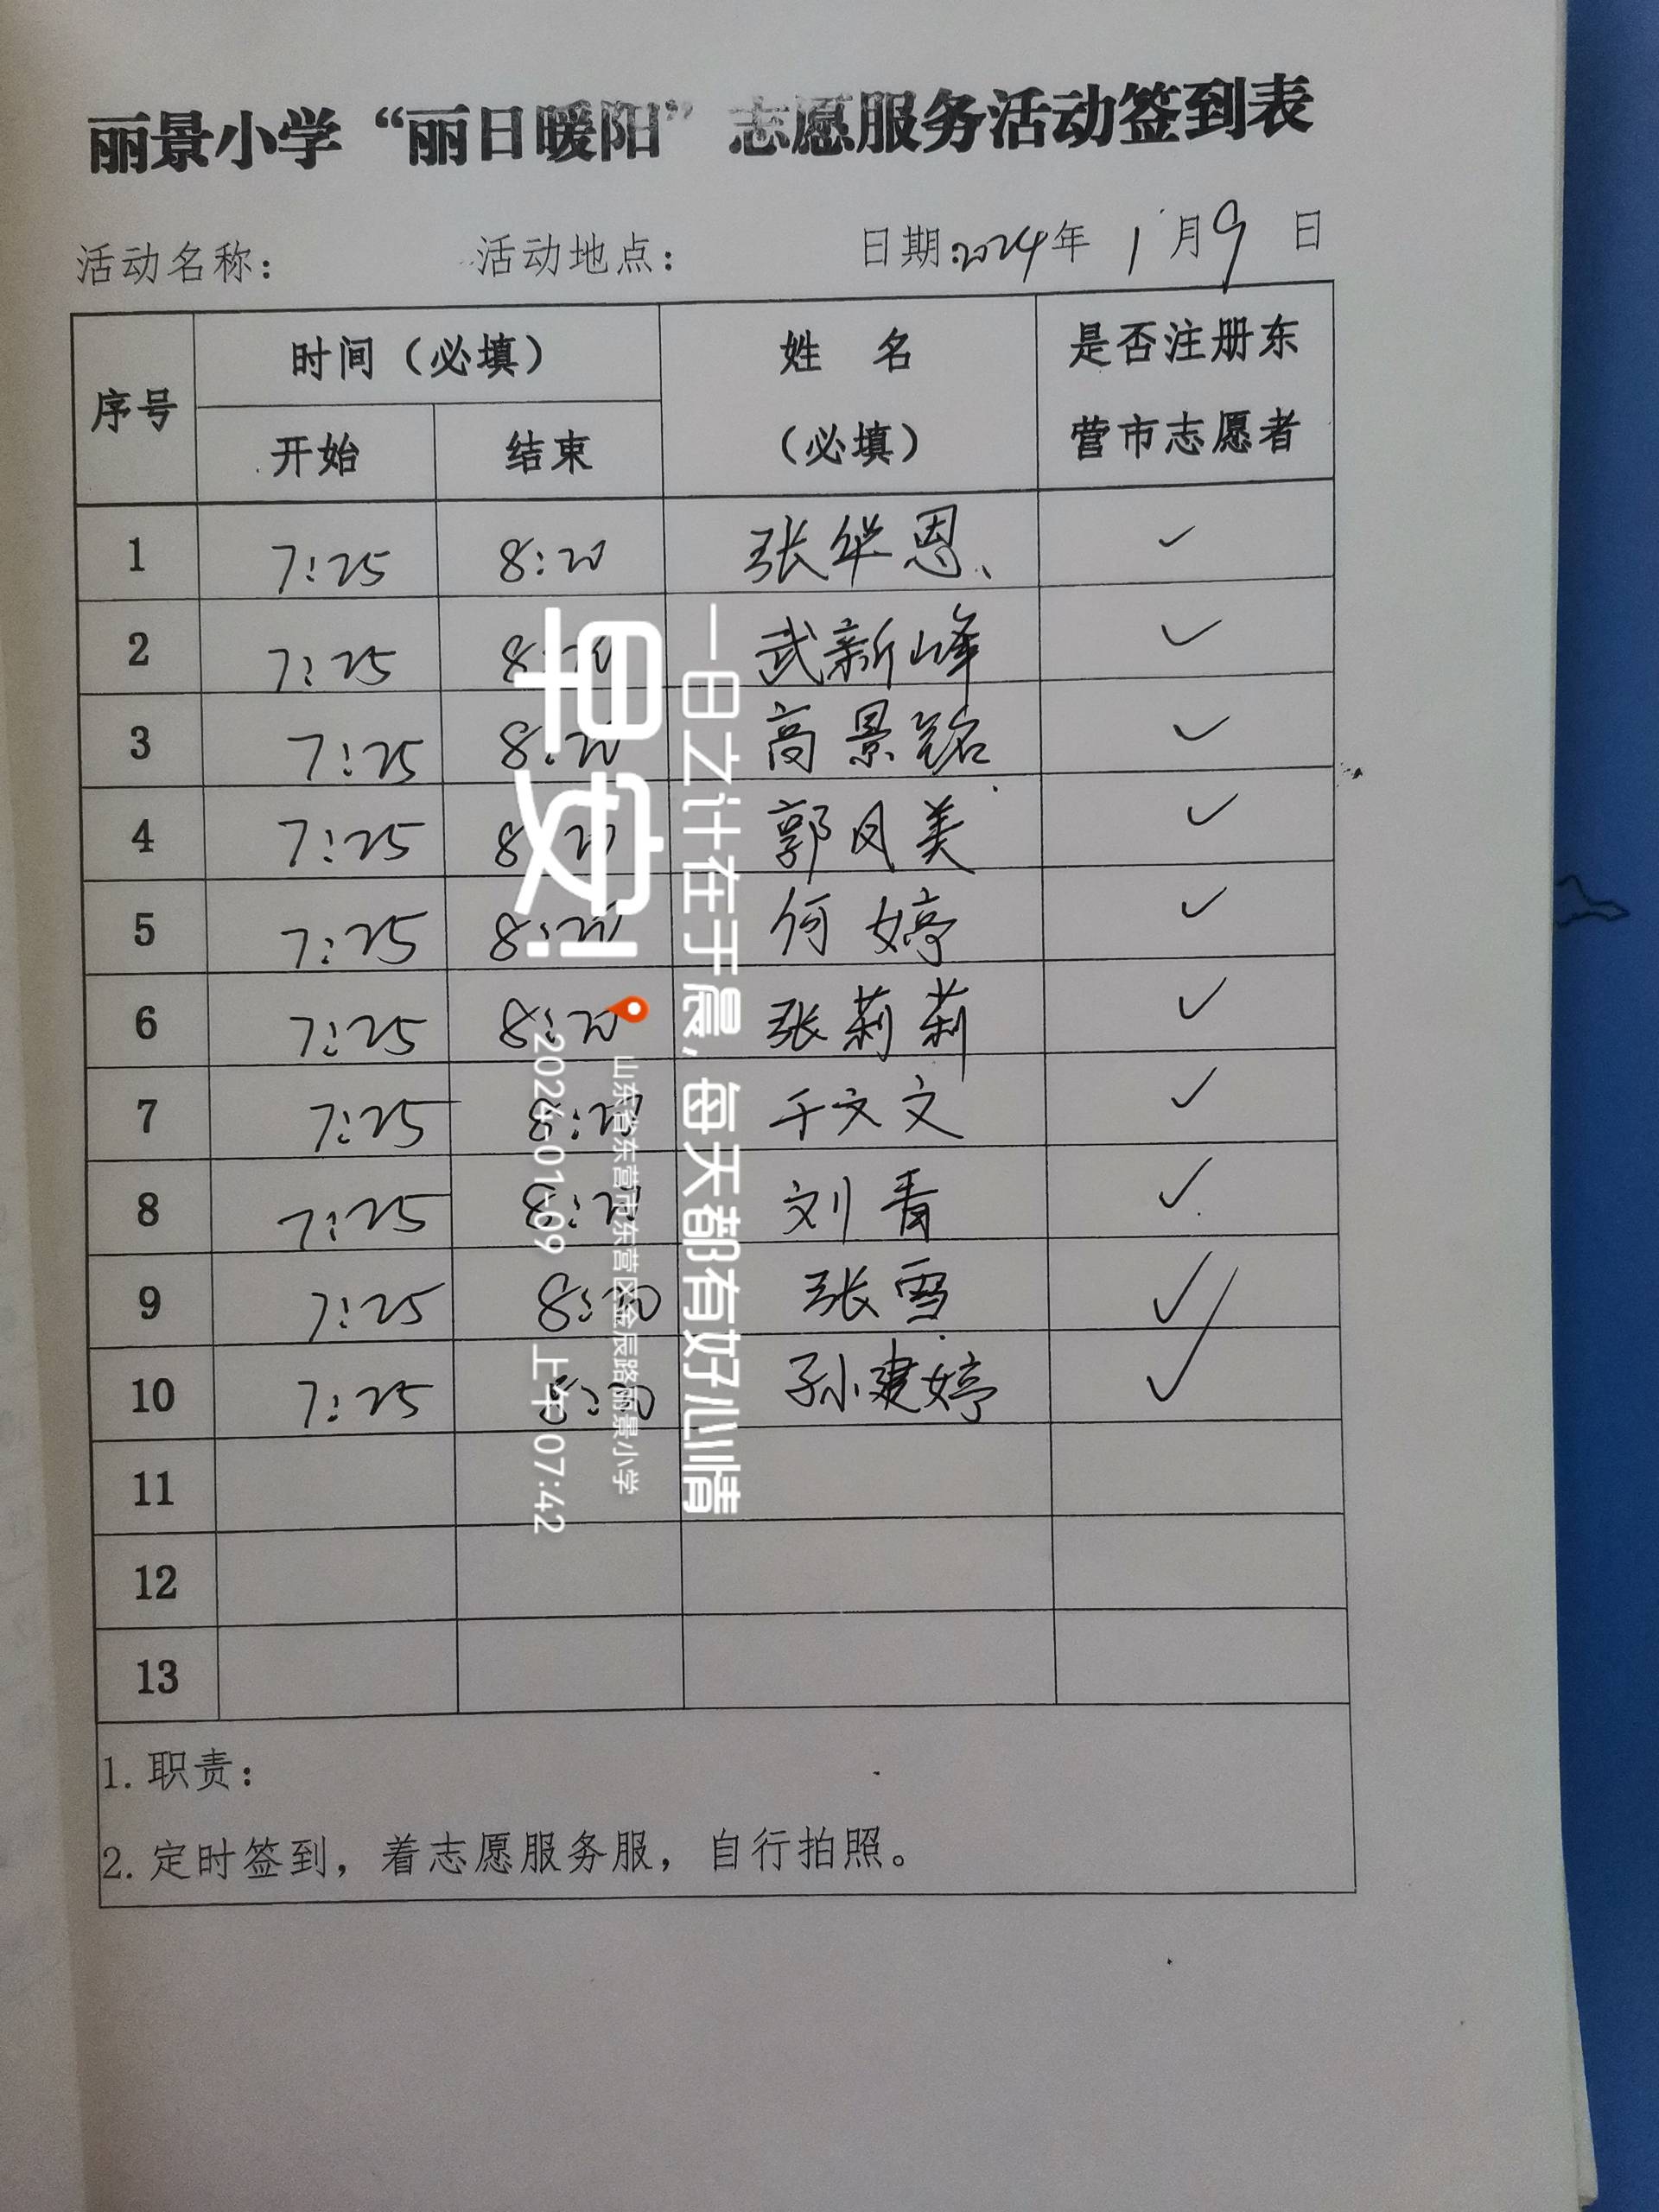 丽景小学“丽日暖阳”志愿服务活动签到表
活动名称： 活动地点： 日期：2024年 1 月 9 日
序号 时间（必填） 姓 名（必填） 是否注册东营市志愿者
开始 结束
1 7:25 8:20 张华恩、 ✓
2 7:25 8:20 武新峰 ✓
3 7:25 8:20 高景铭 ✓
4 7:25 8:20 郭凤美 ✓
5 7:25 8:20 何婷 ✓
6 7:25 8:20 张莉莉 ✓
7 7:25 8:20 于文文 ✓
8 7:25 8:20 刘青 ✓
9 7:25 8:20 张雪 ✓
10 7:25 8:20 孙建婷 ✓
11
12
13
1.职责：
2.定时签到，着志愿服务服，自行拍照。
早安！
一日之计在于晨，每天都有好心情
山东省东营市东营区金辰路丽景小学
2024-01-09 上午07:42